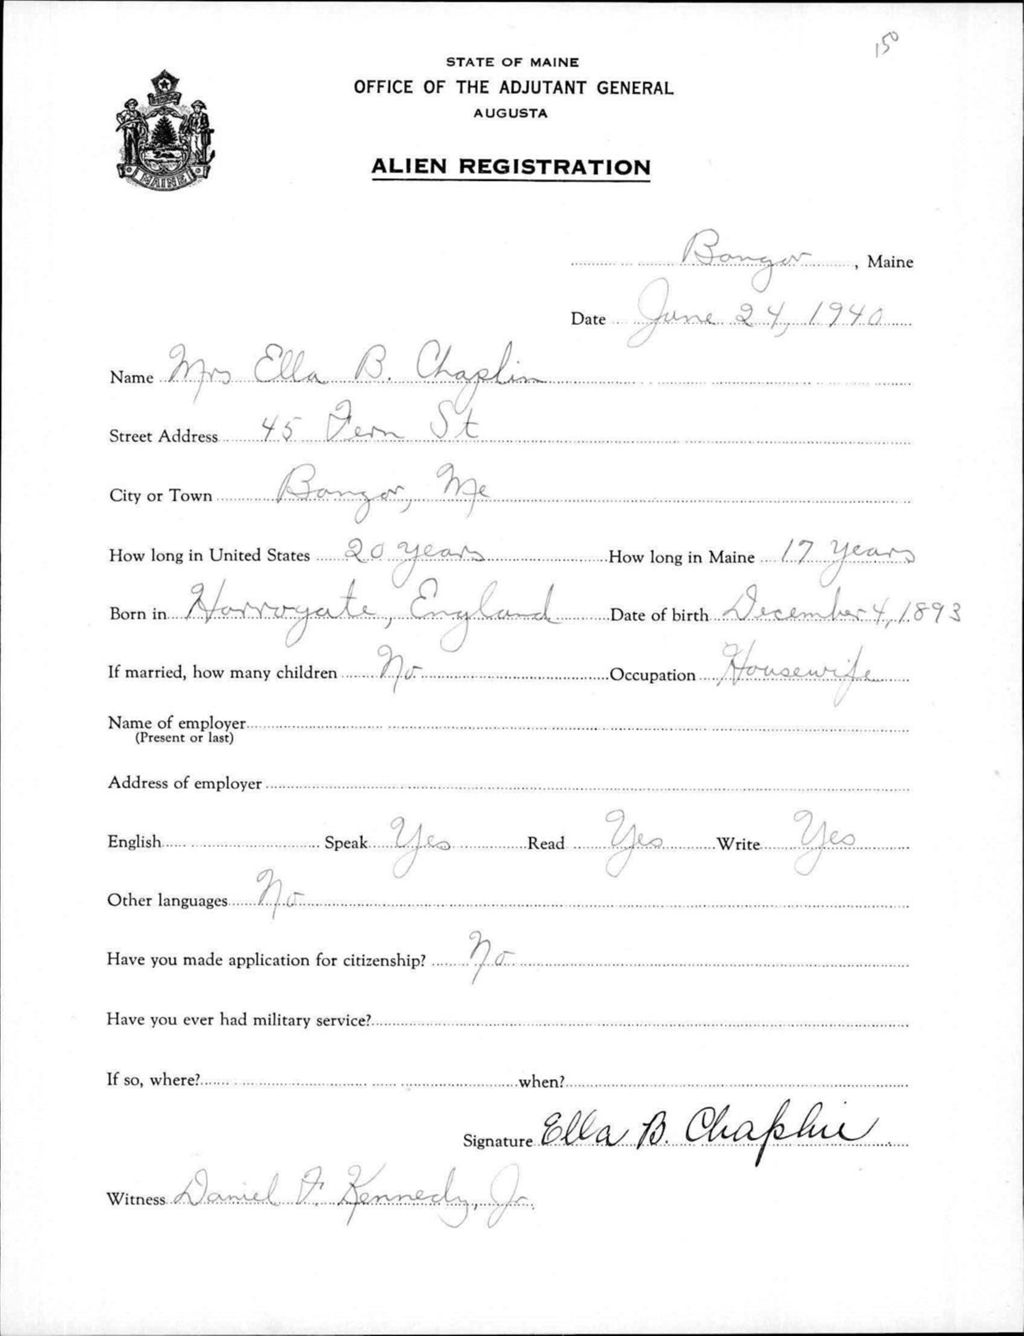 150
STATE OF MAINE
OFFICE OF THE ADJUTANT GENERAL
AUGUSTA
MAINE
ALIEN REGISTRATION
Bangor, Maine
Date June 24, 1940
Name Mrs Ella B. Chaplin
Street Address 45 Fern St
City or Town Bangor, Me
How long in United States 20 years How long in Maine 17 years
Born in Harrogate, England Date of birth December 4, 1893
If married, how many children No Occupation Housewife
Name of employer
(Present or last)
Address of employer
English Speak Yes Read Yes Write Yes
Other languages No
Have you made application for citizenship? No
Have you ever had military service?
If so, where? when?
Signature Ella B. Chaplin
Witness Daniel F. Kennedy, Jr.